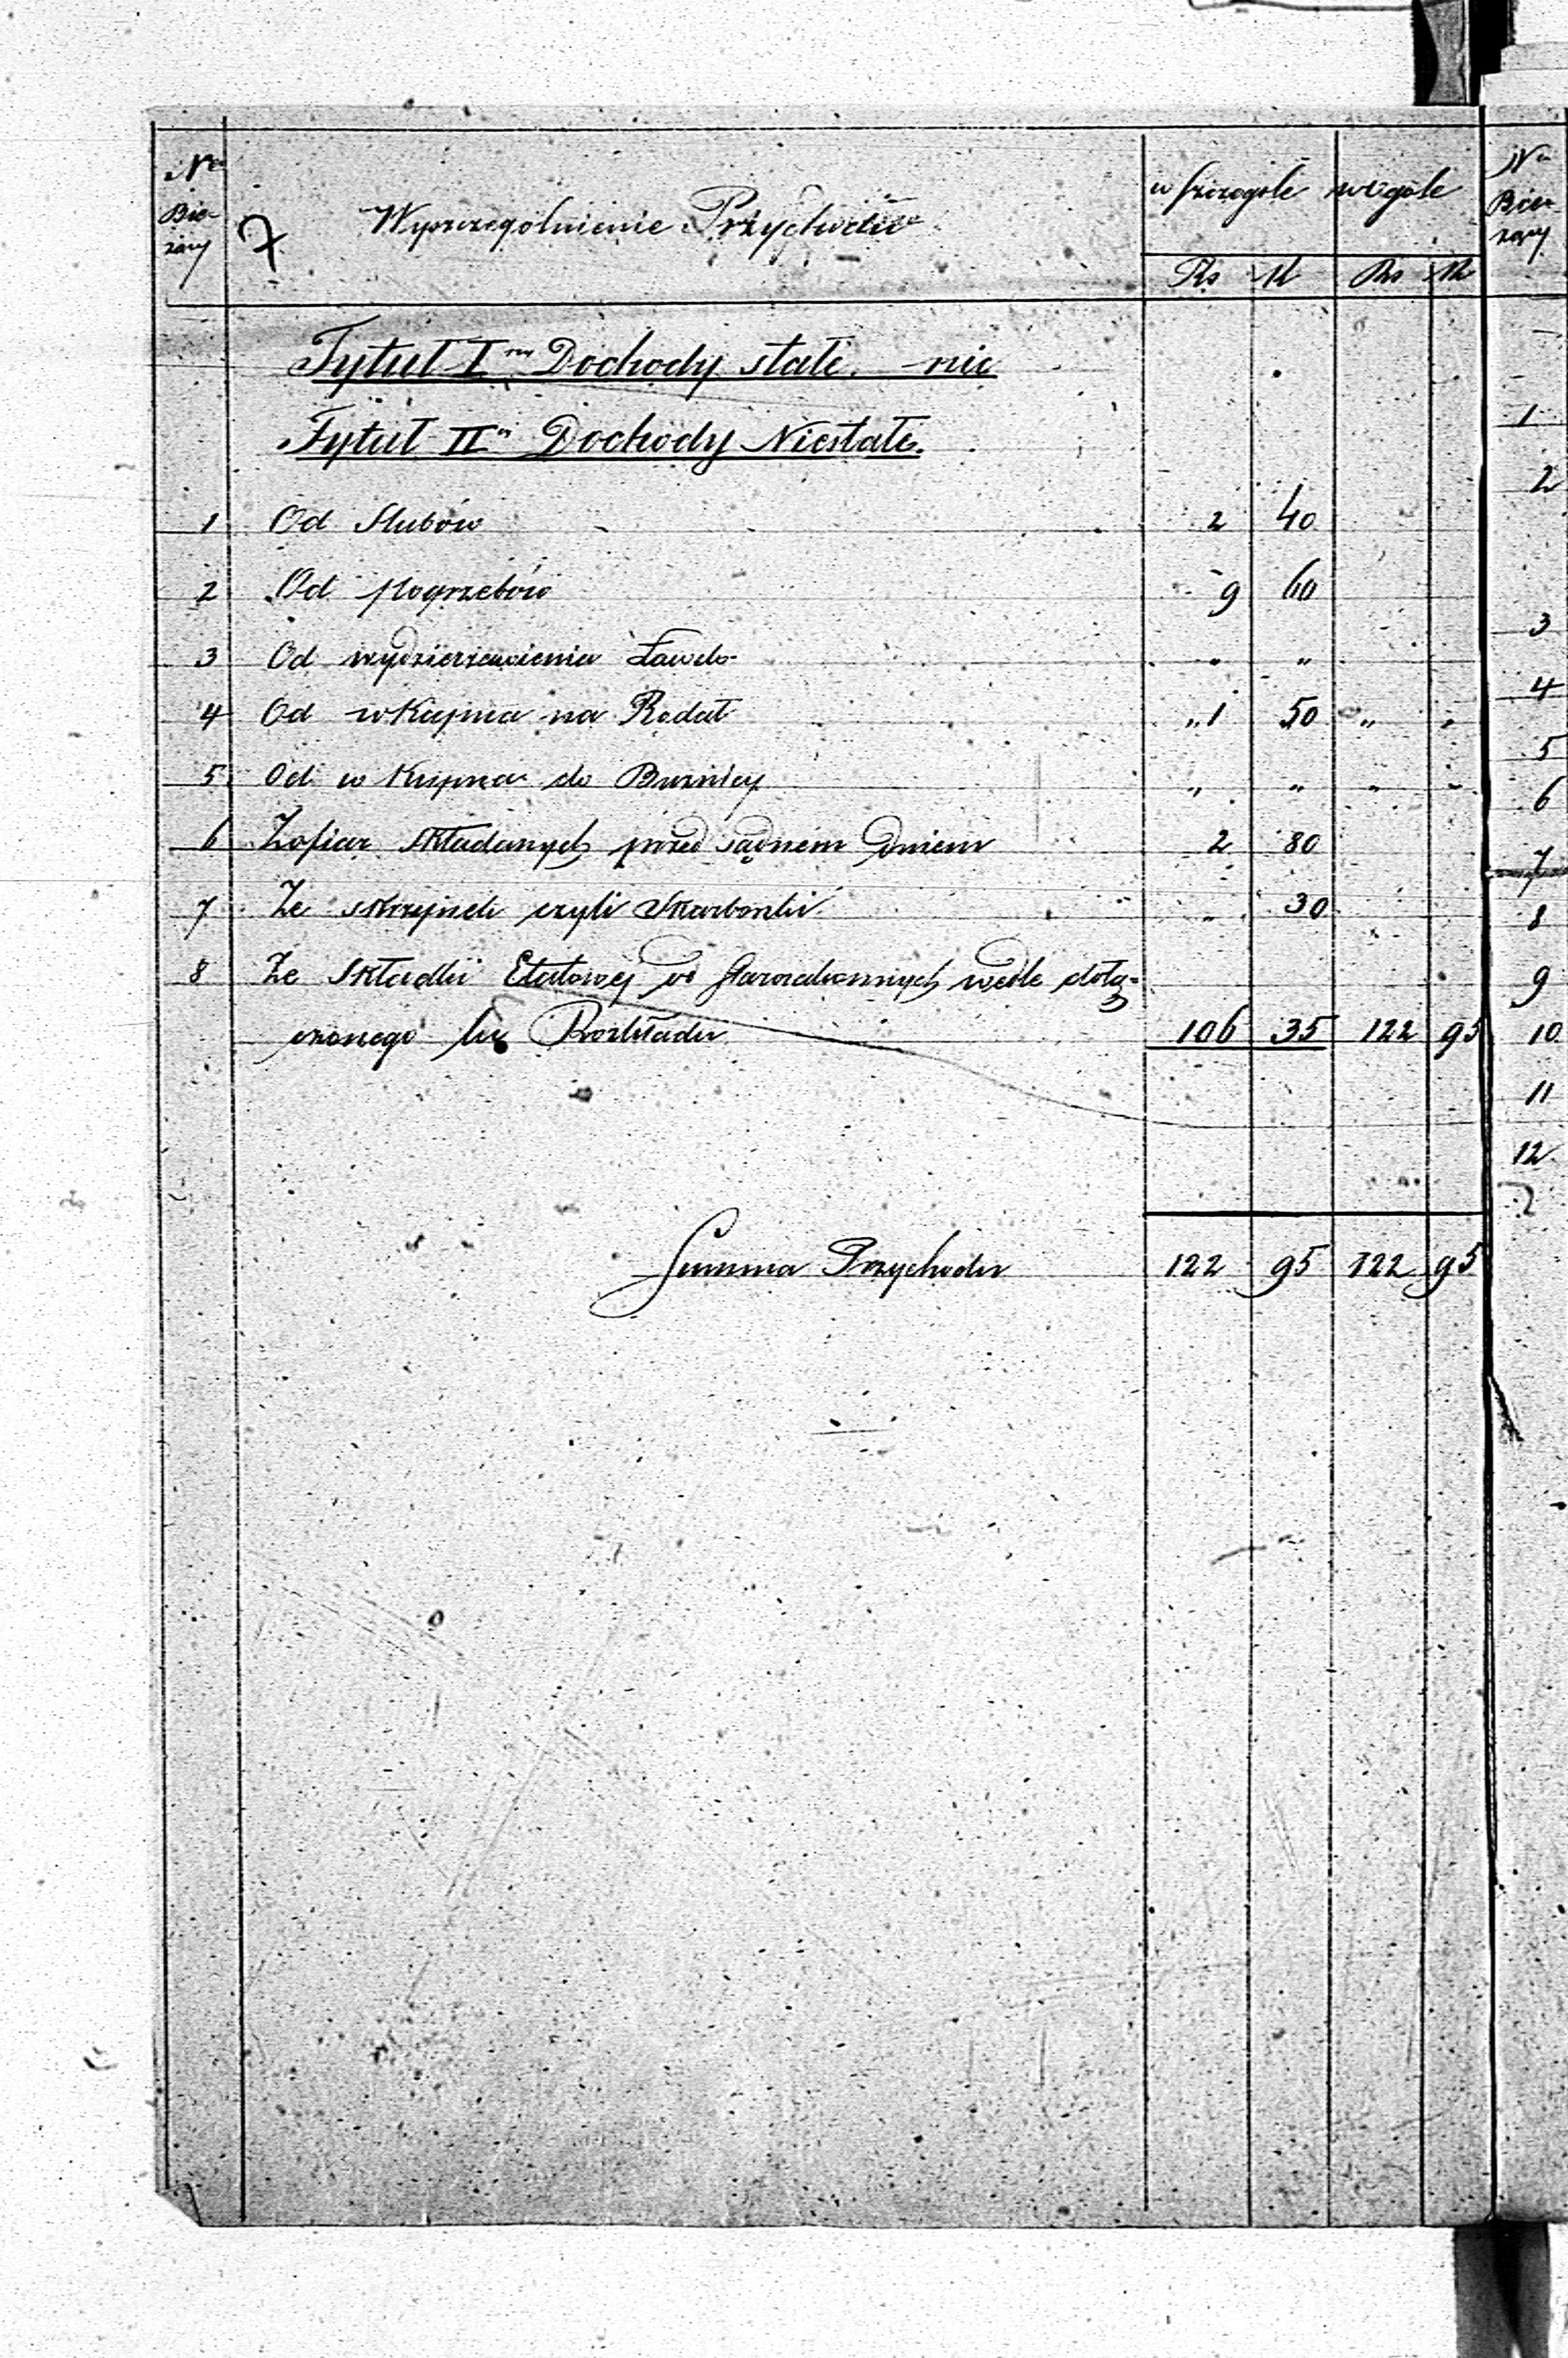 No Bie- żący
7
Wyszczegolnienie Przychodu
w szczegole
w ogole
No Bież żący
Rs K Rs K
Tytuł I Dochody stałe. – nic
Tytuł II Dochody Niestałe.
1 Od Slubów 2 40
2 Od pogrzebów 9 60
3 Od wydzierżawienia Ławek " "
4 Od wkupna na Rodał " 1 50 " "
5 Od w Kupna do Bużnicy " " " "
6 Z ofiar składanych przed sądnem Dniem 2 80
7 Ze skrzynek czyli Skarbonki " 30
8 Ze Składki Etatowej od Starozakonnych wedle dołą-
czonego tu Rozkładu 106 35 122 95
Summa Przychodu 122 95 122 95
1
2
3
4
5
6
7
8
9
10
11
12